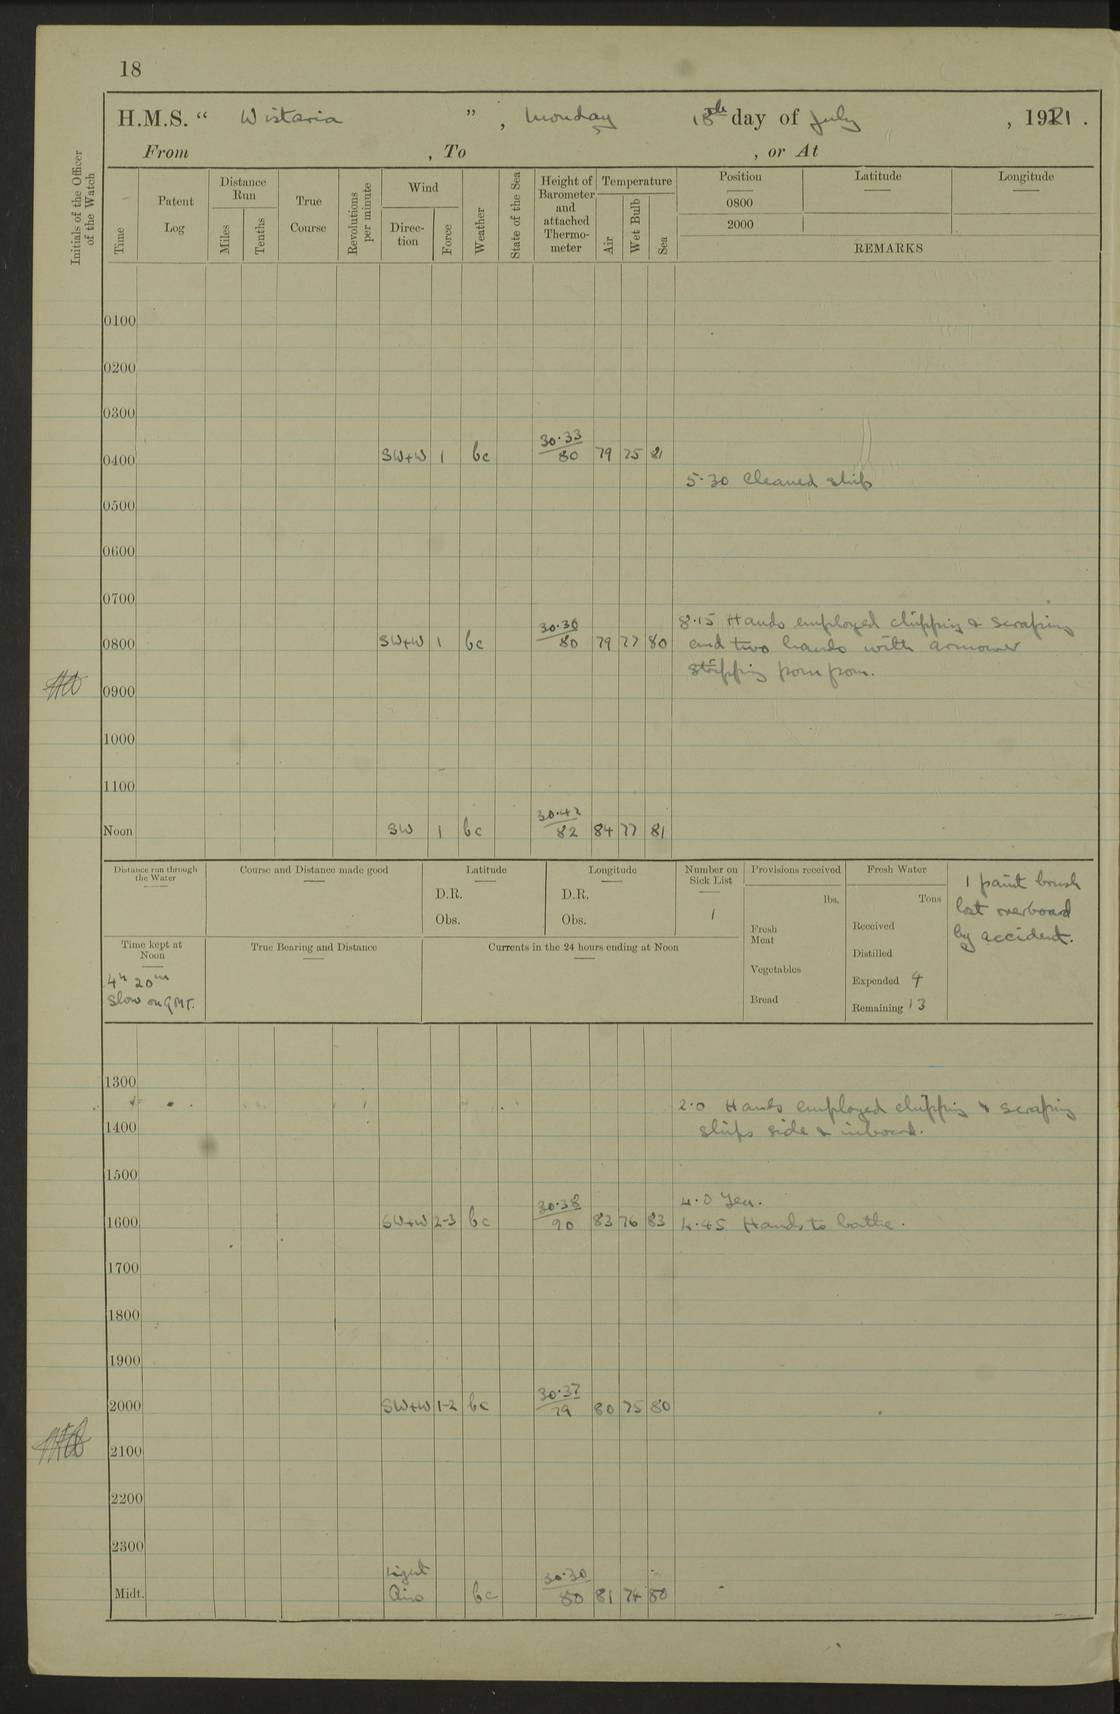 18
H.M.S. “ Wistaria ” , Monday 18th day of July , 1921 .
From , To , or At
Initials of the Officer of the Watch
Time
Patent Log
Distance Run
Miles
Tenths
True Course
Revolutions per minute
Wind
Direc- tion
Force
Weather
State of the Sea
Height of Barometer and attached Thermo- meter
Temperature
Air
Wet Bulb
Sea
Position
Latitude
Longitude
0800
2000
REMARKS
0100
0200
0300
30.33
0400 SW+W 1 bc 80 79 75 81
5.30 Cleaned ship
0500
0600
0700
8.15 Hands employed chipping & scraping
30.36
0800 SW+W 1 bc 80 79 77 80 and two hands with armourer
stripping pom pom.
0900
1000
1100
30.42
Noon SW 1 bc 82 84 77 81
Distance run through the Water
Course and Distance made good
Latitude
D.R.
Obs.
Longitude
D.R.
Obs.
Number on Sick List
1
Provisions received
lbs.
Fresh Meat
Vegetables
Bread
Fresh Water
Tons
Received
Distilled
Expended 4
Remaining 13
1 paint brush
lost overboard
by accident.
Time kept at Noon
4h 20m
Slow on GMT.
True Bearing and Distance
Currents in the 24 hours ending at Noon
1300
2.0 Hands employed chipping & scraping
1400
ships side & inboard.
1500
4.0 Tea.
30.38
1600 SW+W 2-3 bc 90 83 76 83 4.45 Hands to bathe.
1700
1800
1900
30.37
2000 SW+W 1-2 bc 79 80 75 80
2100
2200
2300
Light 30.30
Midt. Airs bc 80 81 74 80